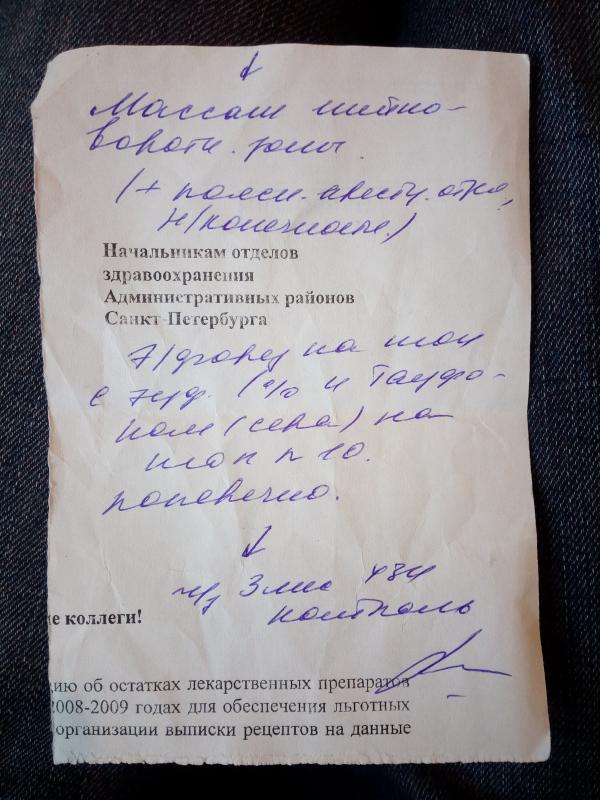 Массаж шейно-
воротн. зоны
(+ поясн.-крестц. отдел,
н/конечности.)
Начальникам отделов
здравоохранения
Административных районов
Санкт-Петербурга
на шоп
с эуф. 1% и
ком (сера) на
шоп n 10.
поперечно.
ч/з 3 мес
контроль
е коллеги!
цию об остатках лекарственных препаратов
2008-2009 годах для обеспечения льготных
организации выписки рецептов на данные